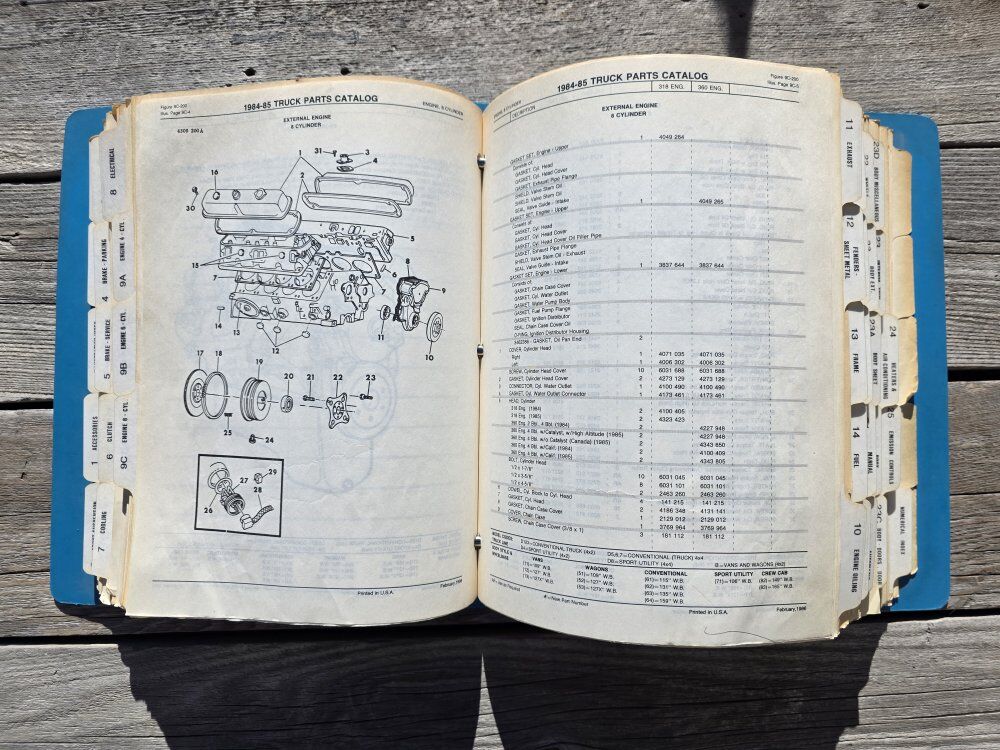 Figure 9C-200
Illus. Page 9C-4
1984-85 TRUCK PARTS CATALOG
ENGINE, 8 CYLINDER
EXTERNAL ENGINE
8 CYLINDER
4309 200A
1
31
3
4
2
16
30
5
6
7
8
9
15
14
13
12
11
10
17
18
19
20
21
22
23
25
24
29
27
28
26
February, 1986
Printed in U.S.A.
8 ELECTRICAL
4 BRAKE - PARKING
9A ENGINE 4 - CYL
5 BRAKE - SERVICE
9B ENGINE 6 - CYL
1 ACCESSORIES
6 CLUTCH
9C ENGINE 8 - CYL
7 COOLING
1984-85 TRUCK PARTS CATALOG
Figure 9C-200
DESCRIPTION
318 ENG. 360 ENG.
EXTERNAL ENGINE
8 CYLINDER
GASKET SET, Engine - Upper 1 4049 264
Consists of:
GASKET, Cyl. Head
GASKET, Cyl. Head Cover
GASKET, Exhaust Pipe Flange
SHIELD, Valve Stem Oil
SHIELD, Valve Stem Oil
SEAL, Valve Guide - Intake
GASKET SET, Engine - Upper 1 4049 265
Consists of:
GASKET, Cyl. Head
GASKET, Cyl. Head Cover
GASKET, Cyl. Head Cover Oil Filler Pipe
GASKET, Exhaust Pipe Flange
SHIELD, Valve Stem Oil - Exhaust
SEAL, Valve Guide - Intake
GASKET SET, Engine - Lower 1 3837 644 3837 644
Consists of:
GASKET, Chain Case Cover
GASKET, Cyl. Water Outlet
GASKET, Water Pump Body
GASKET, Fuel Pump Flange
GASKET, Ignition Distributor
SEAL, Chain Case Cover Oil
O-RING, Ignition Distributor Housing
GASKET, Oil Pan End 2
COVER, Cylinder Head
Right 1 4071 035 4071 035
Left 1 4006 302 4006 302
SCREW, Cylinder Head Cover 10 6031 688 6031 688
GASKET, Cylinder Head Cover 2 4273 129 4273 129
CONNECTOR, Cyl. Water Outlet 1 4100 490 4100 490
GASKET, Cyl. Water Outlet Connector 1 4173 461 4173 461
HEAD, Cylinder
318 Eng. (1984) 2 4100 405
318 Eng. (1985) 2 4323 423
360 Eng. 2 Bbl. 4 Bbl. (1984) 2 4227 948
360 Eng. 4 Bbl. w/Catalyst, w/High Altitude (1985) 2 4227 948
360 Eng. 4 Bbl. w/o Catalyst (Canada) (1985) 2 4343 650
360 Eng. 4 Bbl. w/Calif. (1984) 2 4100 409
360 Eng. 4 Bbl. w/Calif. (1985) 2 4343 805
BOLT, Cylinder Head
1/2 x 1-7/8" 10 6031 045 6031 045
1/2 x 3-5/8" 8 6031 101 6031 101
DOWEL, Cyl. Block to Cyl. Head 4 2463 260 2463 260
GASKET, Cyl. Head 2 4186 348 4131 141
GASKET, Chain Case Cover
COVER, Chain Case 1 2129 012 2129 012
SCREW, Chain Case Cover (3/8 x 1) 3 181 112 181 112
MODEL CODES:
TRUCK LINE
D1&3=CONVENTIONAL TRUCK (4x2)
D4=SPORT UTILITY (4x2)
D5,6,7=CONVENTIONAL (TRUCK) 4x4
D0=SPORT UTILITY (4x4)
B=VANS AND WAGONS (4x2)
BODY STYLE &
WHEELBASE
VANS
(11)=109" W.B.
(12)=127" W.B.
(13)=127X" W.B.
WAGONS
(51)=109" W.B.
(52)=127" W.B.
(53)=127X" W.B.
CONVENTIONAL
(61)=115" W.B.
(62)=131" W.B.
(63)=135" W.B.
(64)=159" W.B.
SPORT UTILITY
(71)=106" W.B.
CREW CAB
(82)=149" W.B.
(83)=165" W.B.
Printed in U.S.A.
February, 1986
11 EXHAUST
12 FENDERS - SHEET METAL
13 FRAME
14 FUEL
10 ENGINE OILING
23D BODY MISCELLANEOUS
23A BODY SHEET
24 HEATERS & AIR CONDITIONING
EMISSION CONTROLS
23C BODY, DOORS
NUMERICAL INDEX